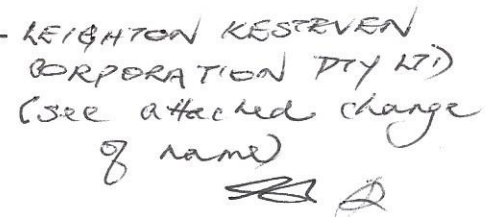 - LEIGHTON KESTEVEN
CORPORATION PTY LTD
(see attached change
of name)